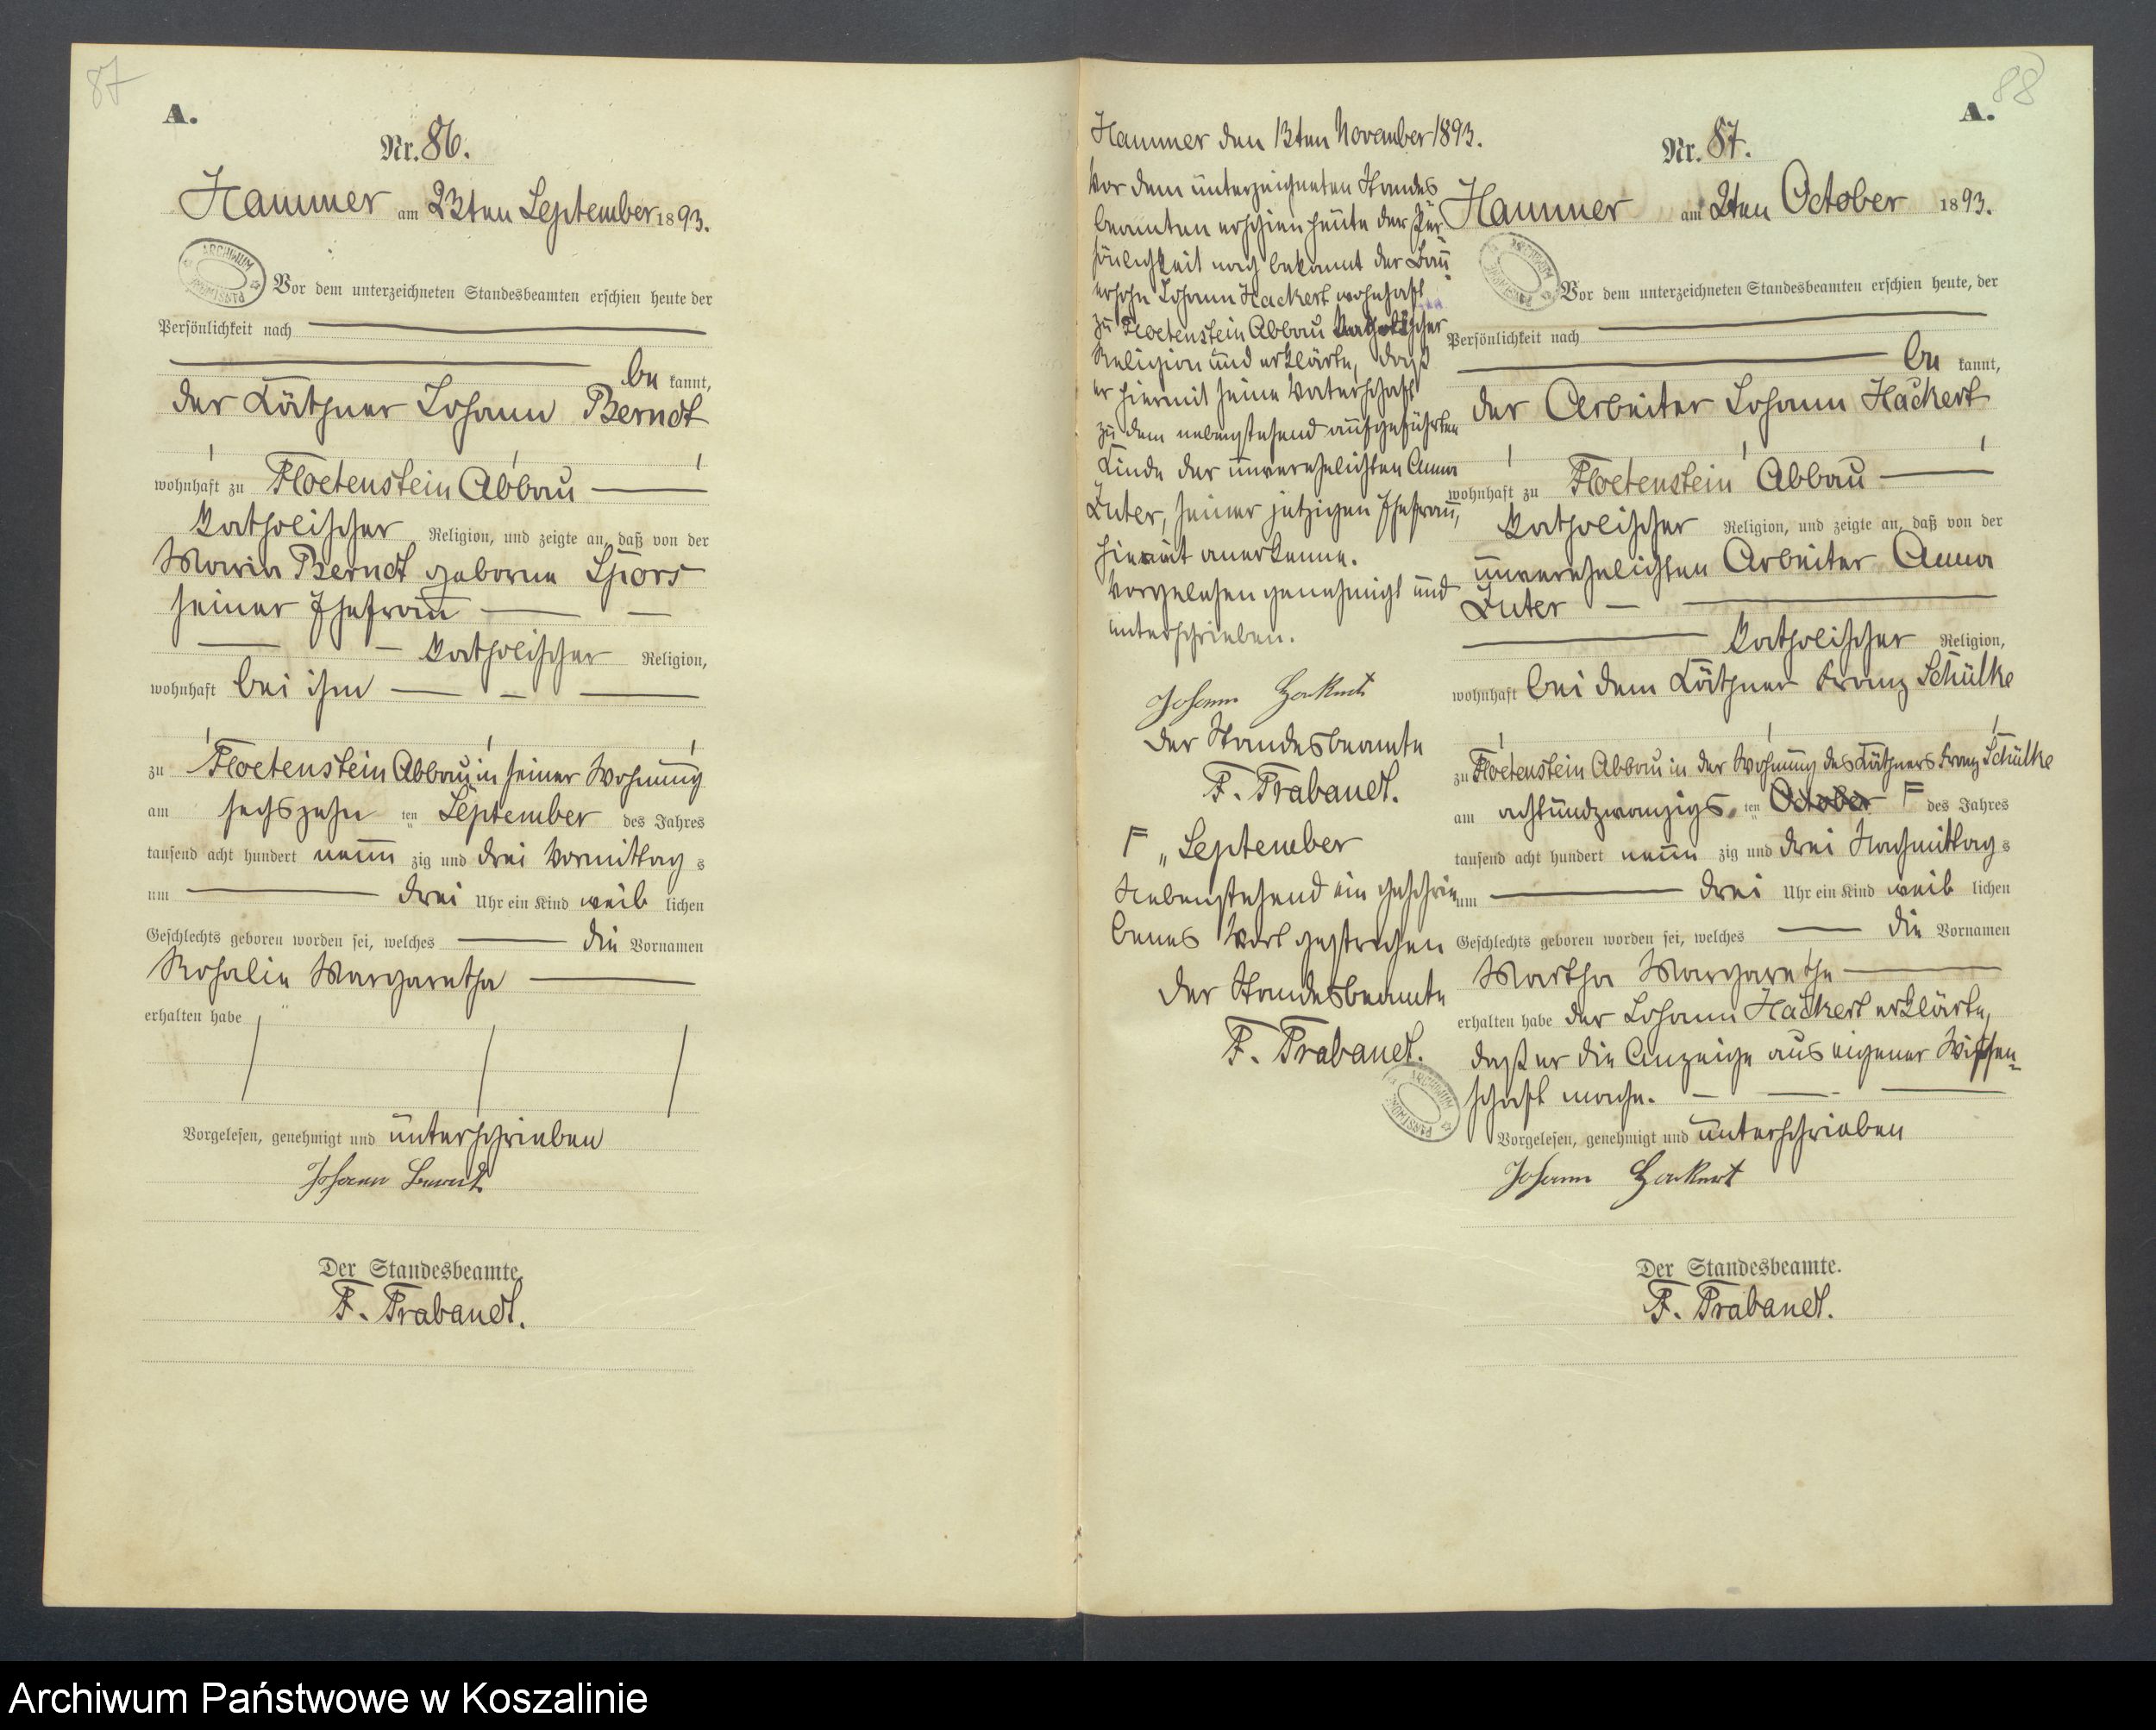 87
A.
Nr. 86.
Hammer am 23ten September 1893.
ARCHIWUM
Vor dem unterzeichneten Standesbeamten erschien heute der
Persönlichkeit nach
be kannt,
der Käthner Johann Berndt
wohnhaft zu Floetenstein Abbau
katholischer Religion, und zeigte an, daß von der
Maria Berndt geborne Spors
seiner Ehefrau
katholischer Religion,
wohnhaft bei ihm
zu Floetenstein Abbau in seiner Wohnung
am sechszehn ten September des Jahres
tausend acht hundert neun zig und drei Vormittag s
um drei Uhr ein Kind weib lichen
Geschlechts geboren worden sei, welches die Vornamen
Rosalie Margaretha
erhalten habe
Vorgelesen, genehmigt und unterschrieben
Johann Berndt
Der Standesbeamte.
F. Trabandt.
Hammer den 13ten November 1893.
Vor dem unterzeichneten Standes
beamten erschien heute der Per
sönlichkeit nach bekannt der Bau
ersohn Johann Hackert wohnhaft
zu Floetenstein Abbau katholischer
Religion und erklärte, daß
er hiermit seine Vaterschaft
zu dem nebenstehend aufgeführten
Kinde der unverehelichten Anna
Zuter, seiner jetzigen Ehefrau,
hiermit anerkenne.
Vorgelesen genehmigt und
unterschrieben.
Johann Hackert
Der Standesbeamte
F. Trabandt.
F „September
Nebenstehend ein geschrie
benes Wort gestrichen
Der Standesbeamte
F. Trabandt.
ARCHIWUM
88
A.
Nr. 87.
Hammer am 2ten October 1893.
ARCHIWUM
Vor dem unterzeichneten Standesbeamten erschien heute, der
Persönlichkeit nach
be kannt,
der Arbeiter Johann Hackert
wohnhaft zu Floetenstein Abbau
katholischer Religion, und zeigte an, daß von der
unverehelichten Arbeiter Anna
Zuter
katholischer Religion,
wohnhaft bei dem Käthner Franz Schülke
zu Floetenstein Abbau in der Wohnung des Käthners Franz Schülke
am achtundzwanzigs ten October F des Jahres
tausend acht hundert neun zig und drei Nachmittag s
um drei Uhr ein Kind weib lichen
Geschlechts geboren worden sei, welches die Vornamen
Martha Margarethe
erhalten habe der Johann Hackert erklärte,
daß er die Anzeige aus eigener Wissen-
schaft mache.
Vorgelesen, genehmigt und unterschrieben
Johann Hackert
Der Standesbeamte.
F. Trabandt.
Archiwum Państwowe w Koszalinie